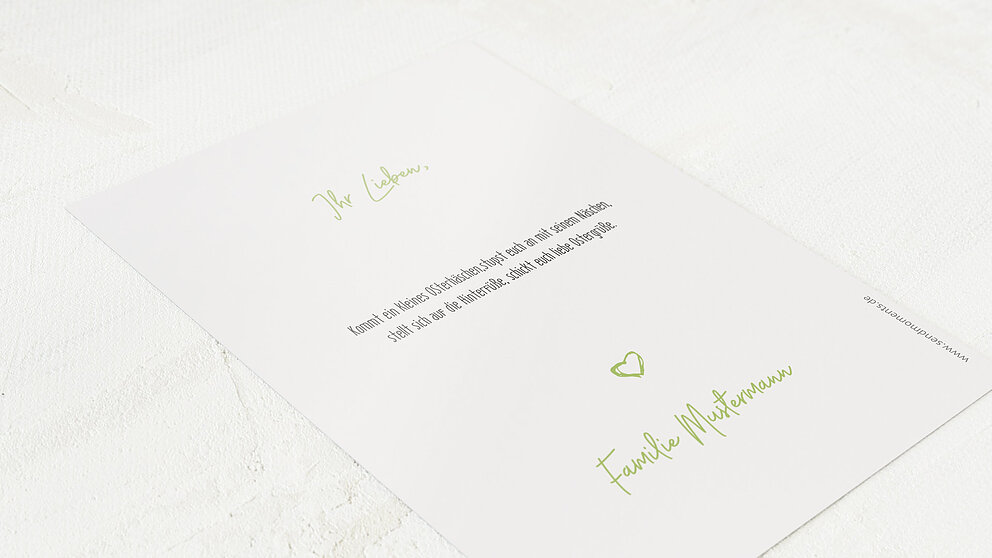 Ihr Lieben,
Kommt ein kleines OSterhäschen,stupst euch an mit seinem Näschen,
stellt sich auf die Hinterfüße, schickt euch liebe Ostergrüße.
Familie Mustermann
www.sendmoments.de